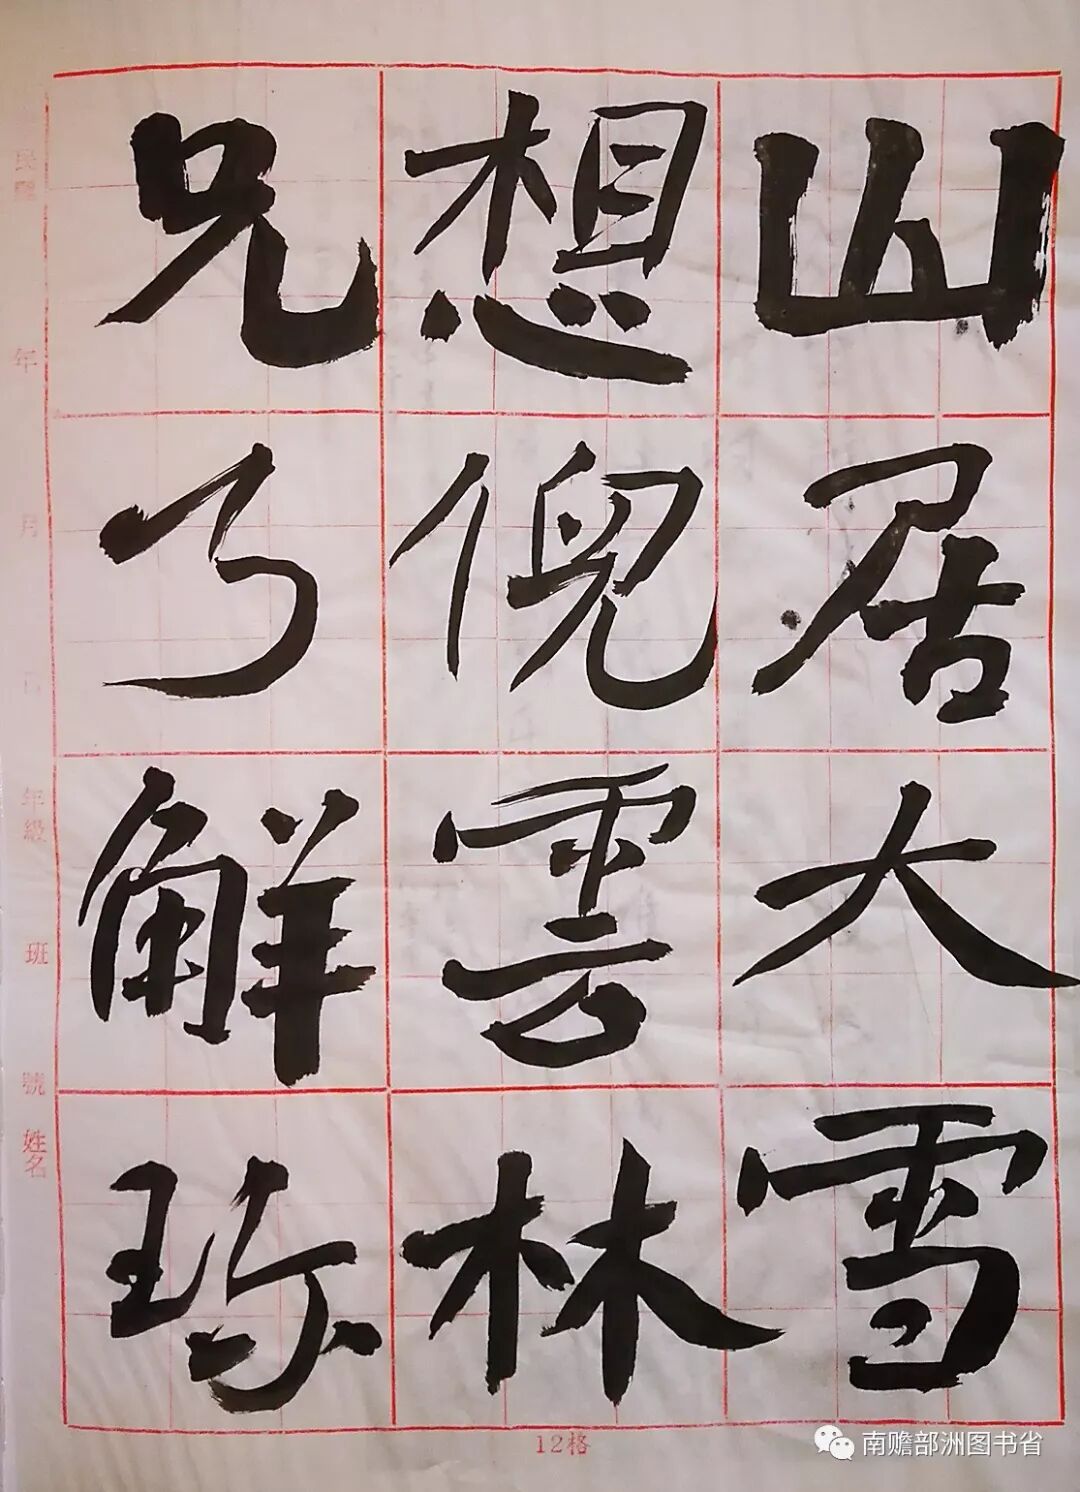 山居大雪
想倪雲林
兄乃觧珎
民國 年 月 日 年級 班 號 姓名
12格
南赡部洲图书省